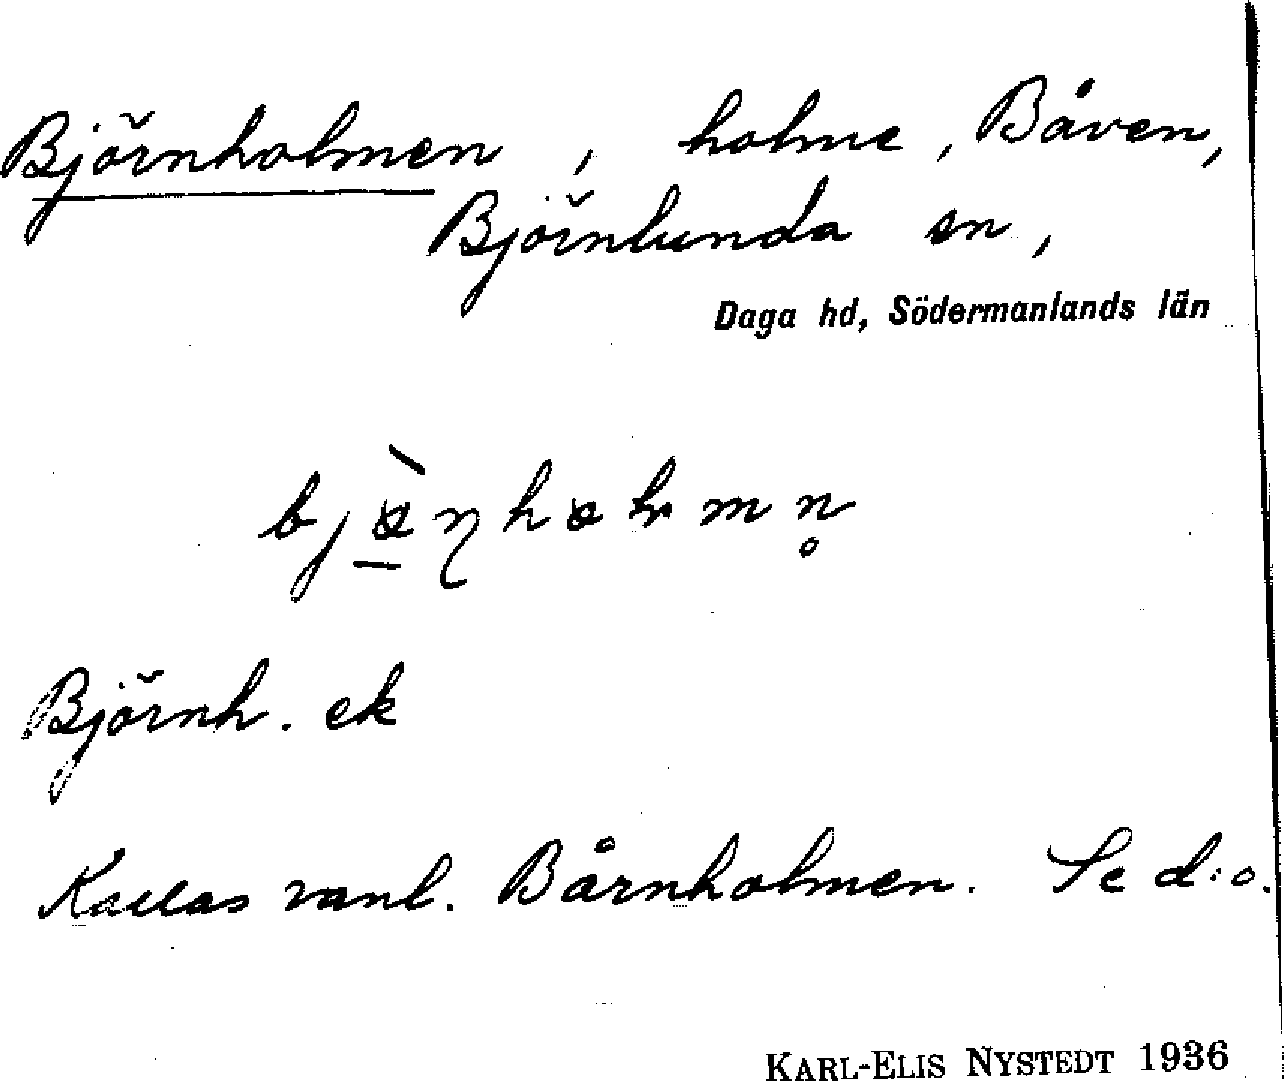 Björnholmen, holme, Båven,
Björnlunda sn,
Daga hd, Södermanlands län
Björnh. ek
Kallas vanl. Bårnholmen. Se d:o.
KARL-ELIS NYSTEDT 1936